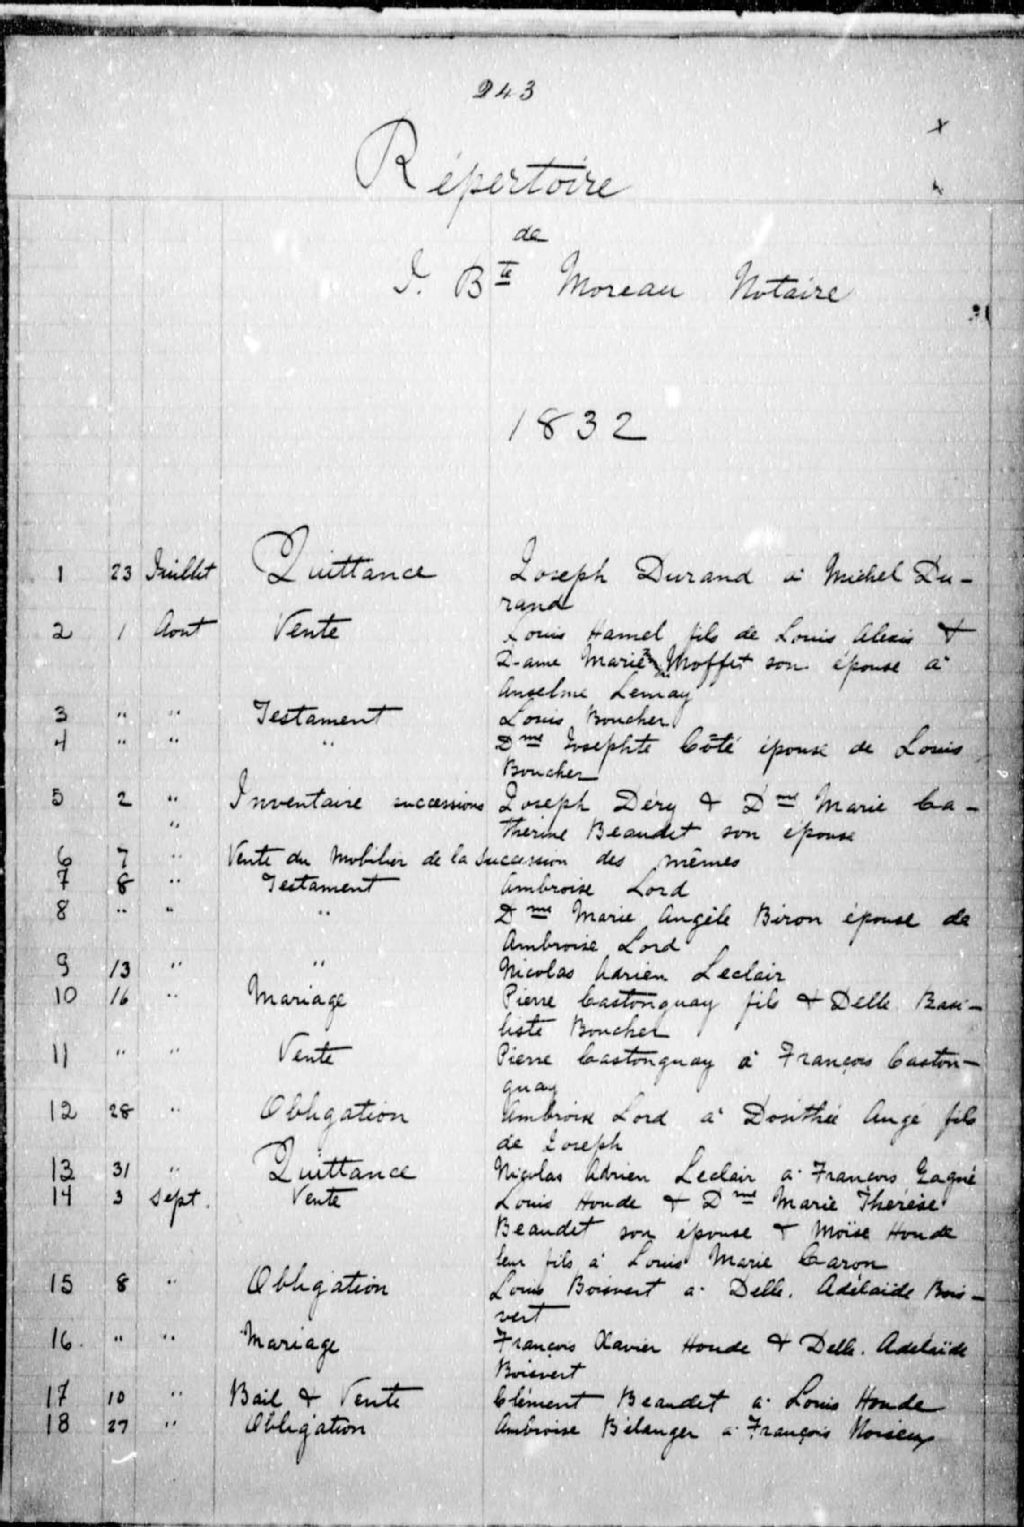 243
Répertoire
de
J. Bte Moreau Notaire
1832
1 23 Juillet Quittance Joseph Durand à Michel Du-
rand
2 1 Aout Vente Louis Hamel fils de Louis Alexis &
Dame Marie Moffet son épouse à
Anselme Lemay
3 " " Testament Louis Boucher
4 " " " Dme Josephte Côté épouse de Louis
Boucher
5 2 " Inventaire successions Joseph Déry & Dme Marie Ca-
" therine Beaudet son épouse
6 7 " Vente du Mobilier de la Succession des mêmes
7 8 " Testament Ambroise Lord
8 " " " Dme Marie Angèle Biron épouse de
Ambroise Lord
9 13 " " Nicolas Adrien Leclair
10 16 " Mariage Pierre Castonguay fils & Delle
liste Boucher
11 " " Vente Pierre Castonguay à François Caston-
guay
12 28 " Obligation Ambroise Lord à Dosithée Augé fils
de Joseph
13 31 " Quittance Nicolas Adrien Leclair à François Gagné
14 3 Sept. Vente Louis Houde & Dme Marie Thérèse
Beaudet son épouse & Moïse Houde
leur fils à Louis Marie Caron
15 8 " Obligation Louis Boisvert à Delle. Adélaïde Bois-
vert
16. " " Mariage François Xavier Houde & Delle. Adélaïde
Boisvert
17 10 " Bail & Vente Clément Beaudet à Louis Houde
18 27 " Obligation Ambroise Bélanger à François Noiseux